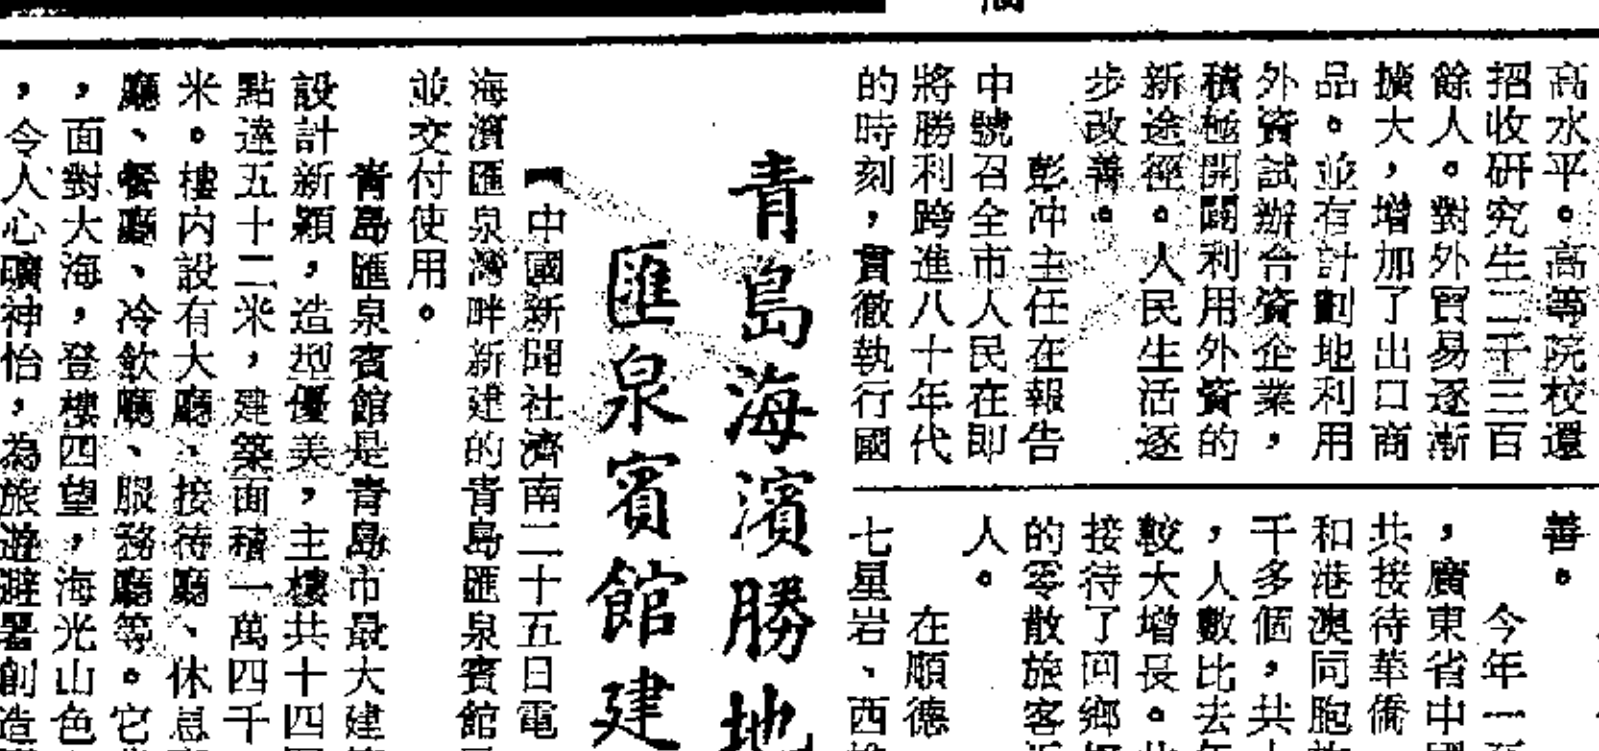 高水平。高等院校還
招收研究生二千三百
餘人。對外貿易逐漸
擴大，增加了出口商
品。並有計劃地利用
外資試辦合資企業，
積極開闢利用外資的
新途徑。人民生活逐
步改善。
彭冲主任在報告
中號召全市人民在即
將勝利跨進八十年代
的時刻，貫徹執行國
善。
今年一
，廣東省中
共接待華僑
和港澳同胞
千多個，共
，人數比去
較大增長。
接待了回鄉
的零散旅客
人。
在順德
七星岩、西
青島海濱勝地
匯泉賓館建
【中國新聞社濟南二十五日電
海濱匯泉灣畔新建的青島匯泉賓館
並交付使用。
青島匯泉賓館是青島市最大建
設計新穎，造型優美，主樓共十四
點達五十二米，建築面積一萬四千
米。樓内設有大廳、接待廳、休息
廳、餐廳、冷飲廳、服務廳等。它
，面對大海，登樓四望，海光山色
，令人心曠神怡，為旅遊避署創造